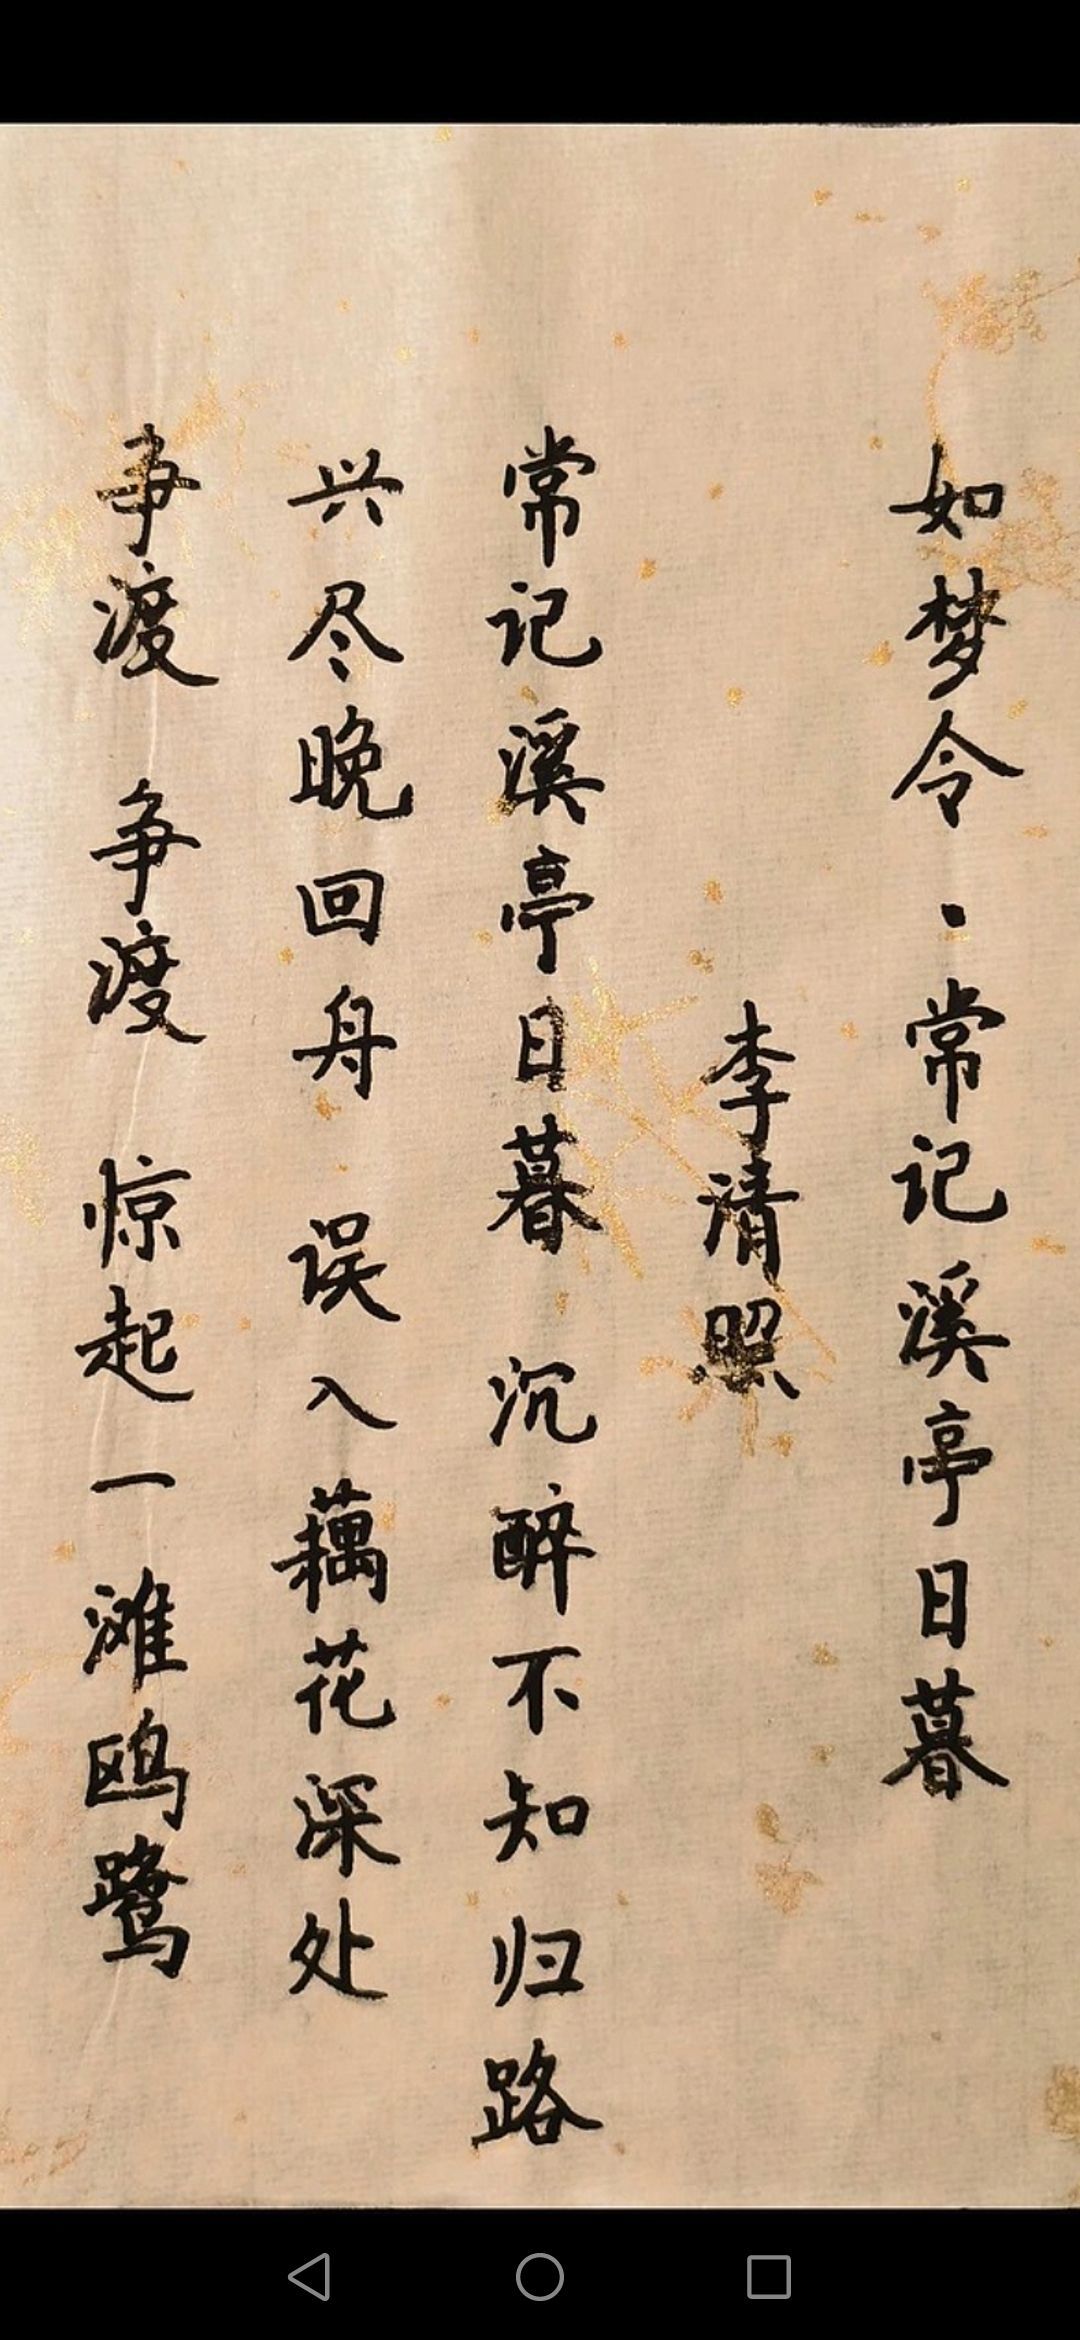 如梦令·常记溪亭日暮
李清照
常记溪亭日暮 沉醉不知归路
兴尽晚回舟 误入藕花深处
争渡 争渡 惊起一滩鸥鹭